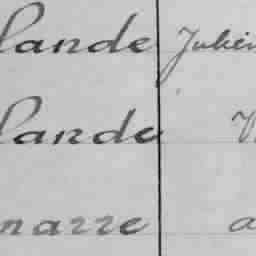 lande Julien
lande V
narre a